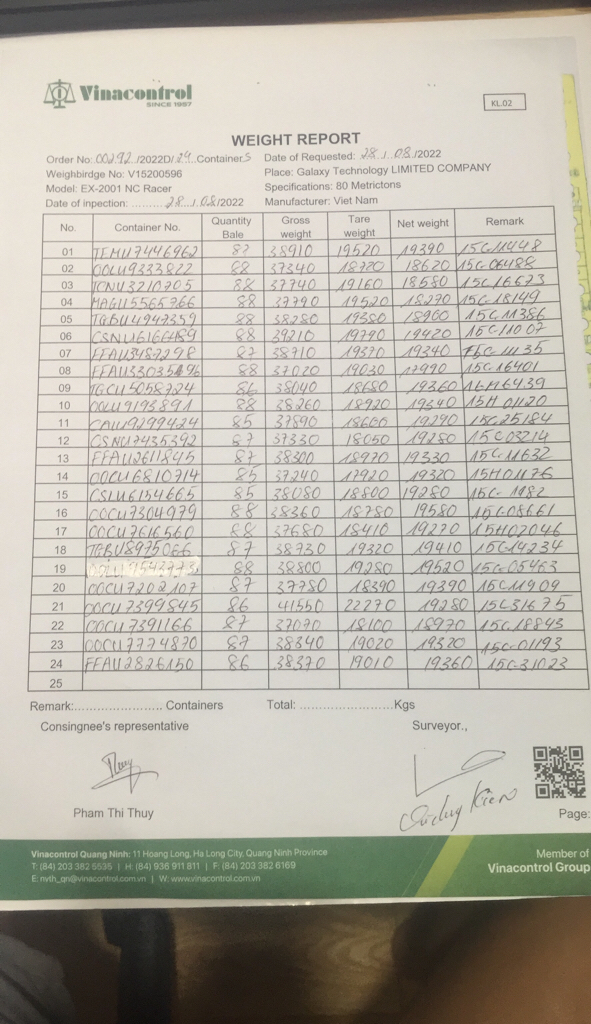 Vinacontrol
SINCE 1957
KL.02
WEIGHT REPORT
Order No: 00292 /2022D/ 24 Containers Date of Requested: 28 / 08 /2022
Weighbirdge No: V15200596 Place: Galaxy Technology LIMITED COMPANY
Model: EX-2001 NC Racer Specifications: 80 Metrictons
Date of inpection: ......... 28 / 08 /2022 Manufacturer: Viet Nam
No. Container No. Quantity Bale Gross weight Tare weight Net weight Remark
01 TEMU7446962 87 38910 19520 19390 15C11448
02 OOLU9333822 88 37340 18720 18620 15C-06488
03 TCNU3210705 88 37740 19160 18580 15C16673
04 MAGU5565766 88 37790 19520 18270 15C-18149
05 TGBU4947359 88 38280 19380 18900 15C11386
06 88 39210 19790 19420 15C-11007
07 FFAU3487298 87 38710 19370 19340
08 88 37020 19030 17990 15C-16401
09 TGCU5058724 86 38040 18680 19360 16H6439
10 OOLU9193891 88 38260 18920 19340 15H 01120
11 CAIU9299424 85 37890 18600 19290 15C25184
12 CSNU7435392 87 37330 18050 19280 15C03214
13 FFAU2611845 87 38300 18970 19330 15C-11632
14 OOCU6810714 85 37240 17920 19320 15H01176
15 CSLU6154665 85 38080 18800 19280 15C-1182
16 OOCU7304979 88 38360 18780 19580 15C-08661
17 OOCU7616560 88 37680 18410 19270 15H02046
18 TGBU8975066 87 38730 19320 19410 15C14234
19 88 38800 19280 19520 15C-05463
20 OOCU7202107 87 37780 18390 19390 15C11909
21 OOCU7399845 86 41550 22270 19280 15C31675
22 OOCU7391166 87 37070 18100 18970 15C18843
23 OOCU7774870 87 38340 19020 19320 15C-01193
24 FFAU2826150 86 38370 19010 19360 15C-31023
25
Remark:...................... Containers Total: ........................Kgs
Consingnee's representative Surveyor.,
Thuy
Pham Thi Thuy
Page:
Vinacontrol Quang Ninh: 11 Hoang Long, Ha Long City, Quang Ninh Province
T: (84) 203 382 5535 | H: (84) 936 911 811 | F: (84) 203 382 6169
E: nvth_qn@vinacontrol.com.vn | W: www.vinacontrol.com.vn
Member of
Vinacontrol Group